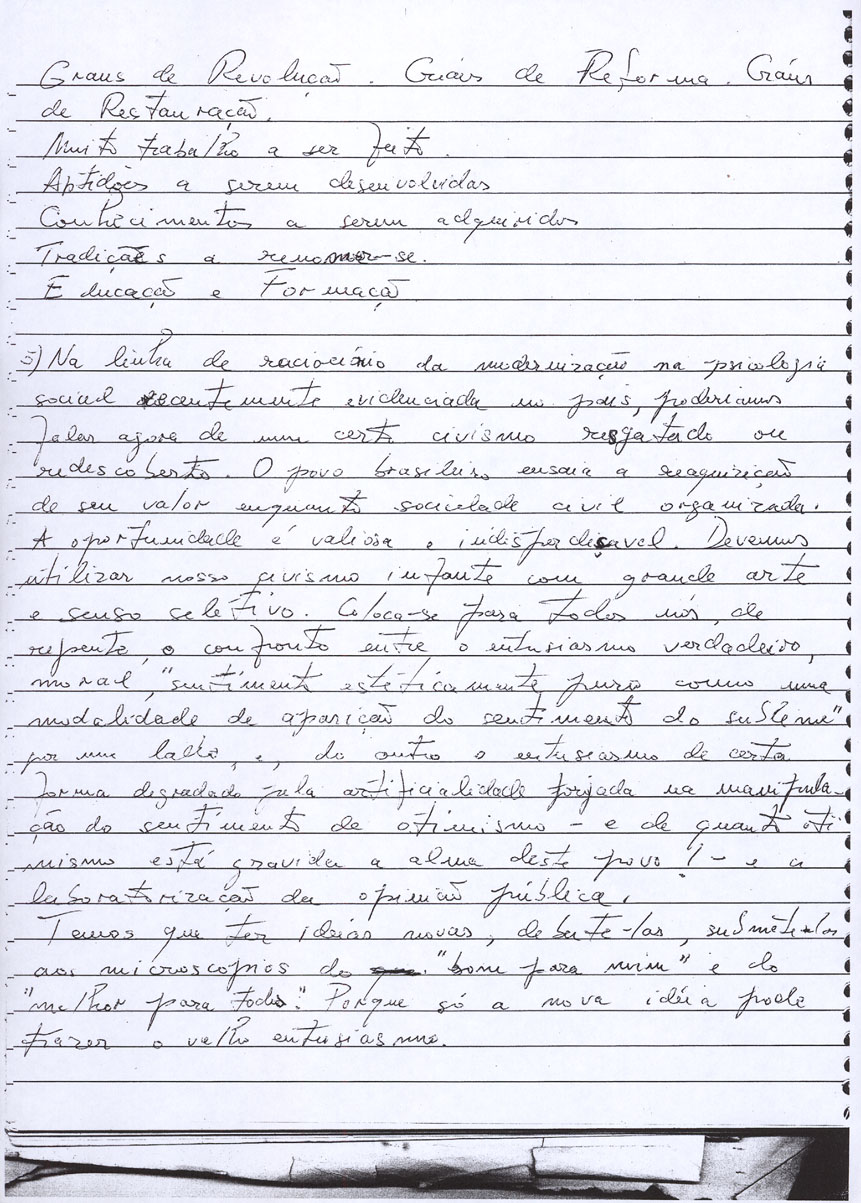 Graus de Revolução. Graus de Reforma. Graus
de Restauração.
Muito trabalho a ser feito.
Aptidões a serem desenvolvidas
Conhecimentos a serem adquiridos
Tradições a renovar-se.
Educação e Formação
5) Na linha de raciocínio da modernização na psicologia
social recentemente evidenciada no país, poderíamos
falar agora de um certo civismo resgatado ou
redescoberto. O povo brasileiro ensaia a reaquisição
de seu valor enquanto sociedade civil organizada.
A oportunidade é valiosa e indisperdiçavel. Devemos
utilizar nosso civismo infante com grande arte
e senso seletivo. Coloca-se para todos nós, de
repente, o confronto entre o entusiasmo verdadeiro,
moral, "sentimento estéticamente puro como uma
modalidade de aparição do sentimento do sublime"
por um lado, e, do outro o entusiasmo de certa
forma degradado pela artificialidade forjada na manipula-
ção do sentimento de otimismo - e de quanto oti
mismo está gravida a alma deste povo! - e a
laboratorização da opinião pública.
Temos que ter idéias novas, debate-las, submête-las
aos microscopios do "bom para mim" e do
"melhor para todos". Porque só a nova idéia pode
trazer o velho entusiasmo.